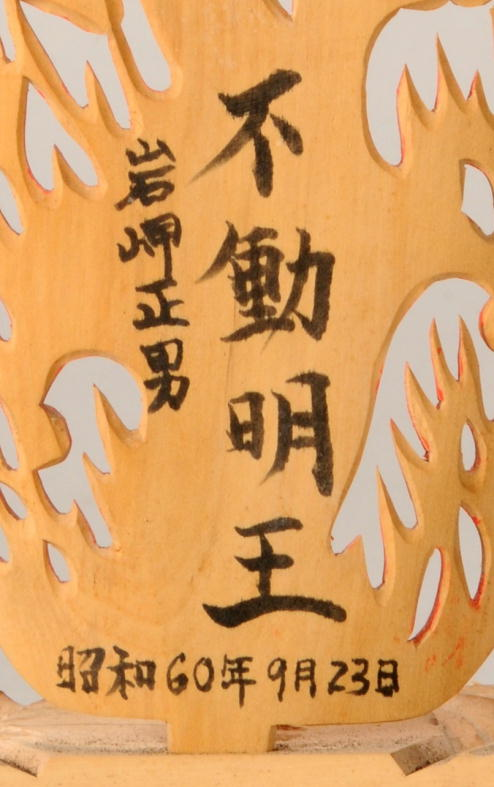 不働明王
岩岬正男
昭和60年9月23日